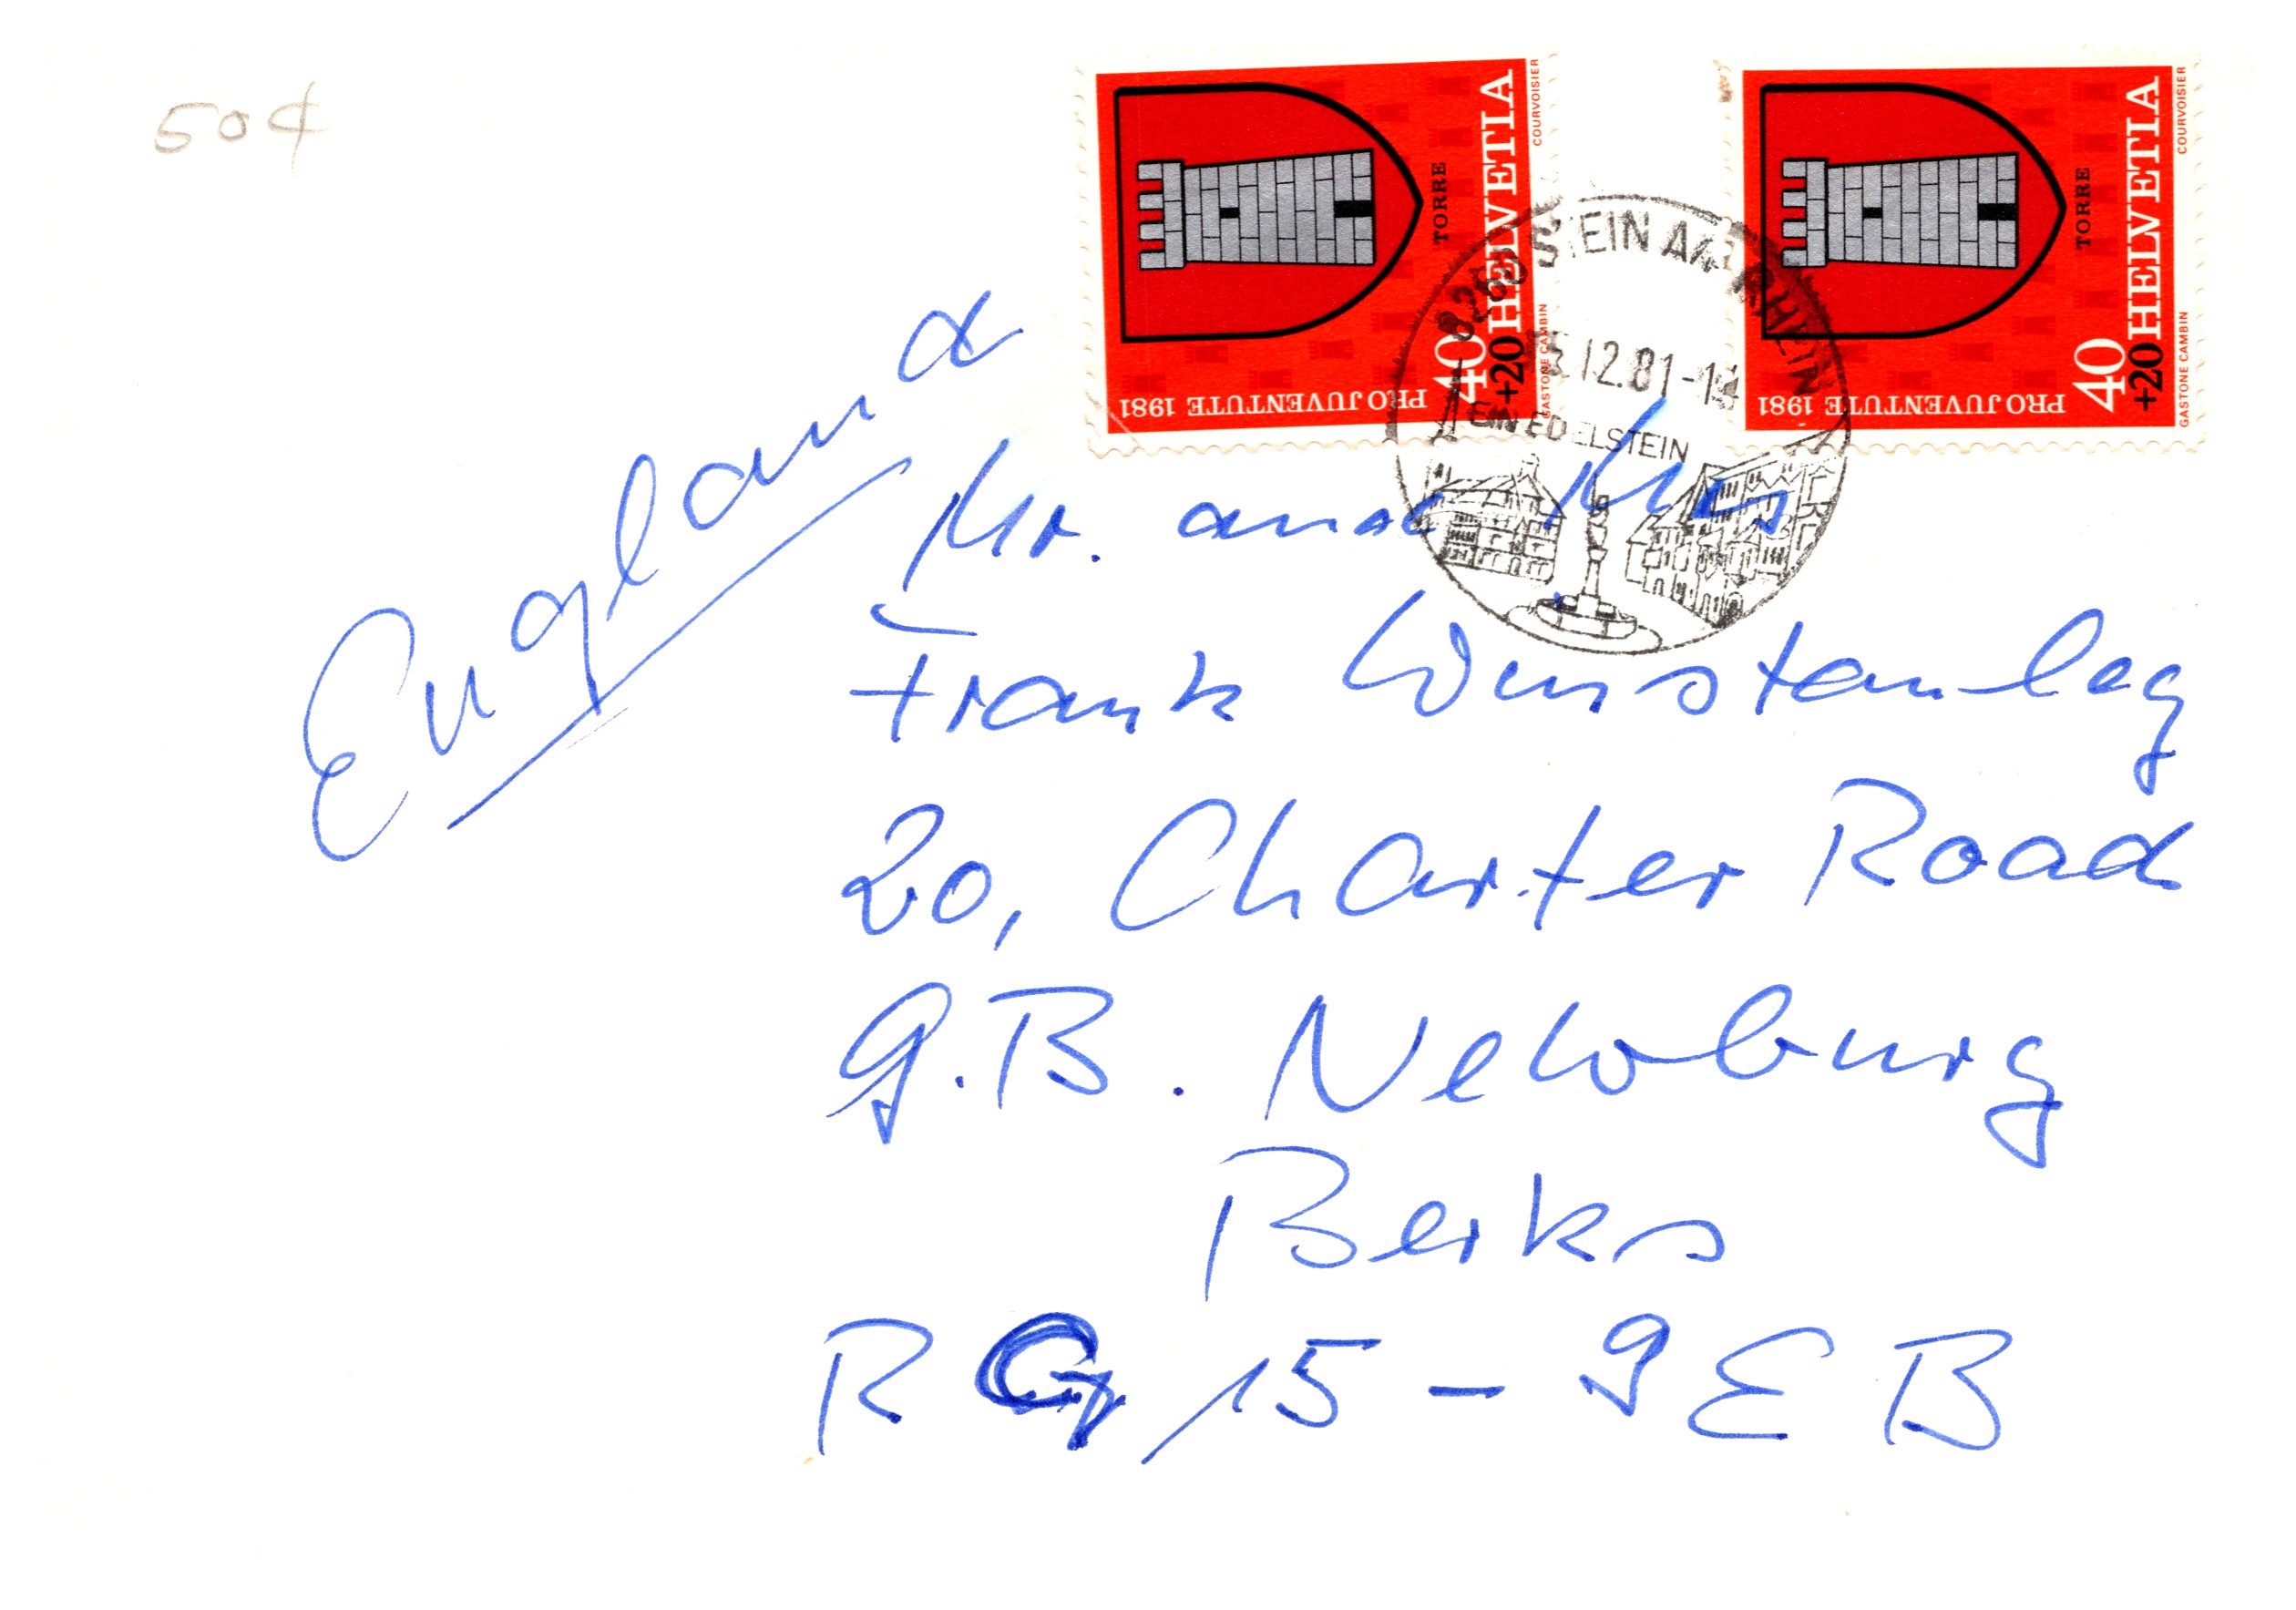 50¢
PRO JUVENTUTE 1981
TORRE
40
+20
HELVETIA
COURVOISIER
GASTONE CAMBIN
PRO JUVENTUTE 1981
TORRE
40
+20
HELVETIA
COURVOISIER
GASTONE CAMBIN
STEIN AM RHEIN
12.81-
EIN EDELSTEIN
England
Mr. and Mrs
Frank Winstanley
20, Charter Road
G.B. Newburg
Berks
R G 15 - 9 E B